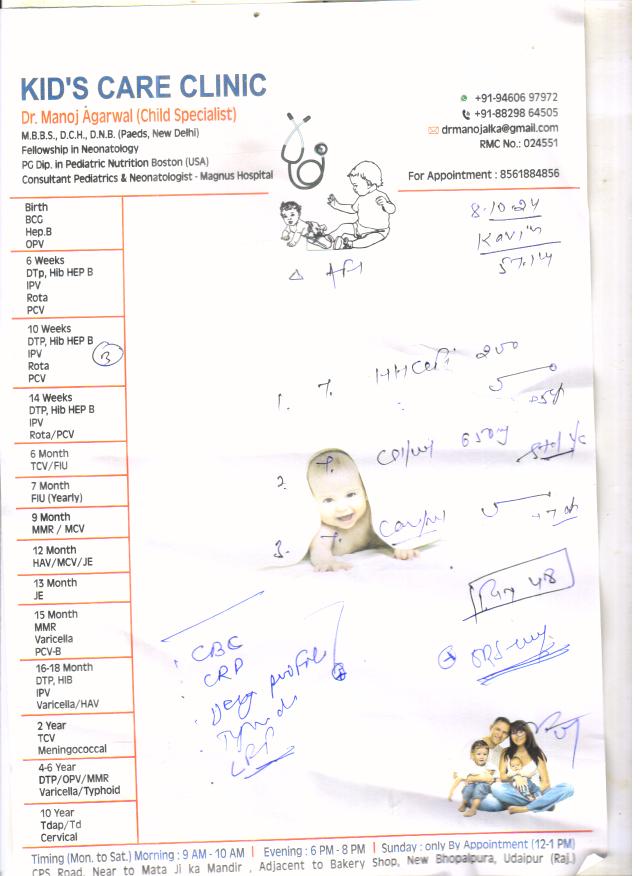 KID'S CARE CLINIC
Dr. Manoj Agarwal (Child Specialist)
M.B.B.S., D.C.H., D.N.B. (Paeds, New Delhi)
Fellowship in Neonatology
PG Dip. in Pediatric Nutrition Boston (USA)
Consultant Pediatrics & Neonatologist - Magnus Hospital
+91-94606 97972
+91-88298 64505
drmanojalka@gmail.com
RMC No.: 024551
For Appointment : 8561884856
8.10.24
Kavin
Birth
BCG
Hep.B
OPV
6 Weeks
DTp, Hib HEP B
IPV
Rota
PCV
10 Weeks
DTP, Hib HEP B
IPV
Rota
PCV
14 Weeks
DTP, Hib HEP B
IPV
Rota/PCV
6 Month
TCV/FIU
7 Month
FIU (Yearly)
9 Month
MMR / MCV
12 Month
HAV/MCV/JE
13 Month
JE
15 Month
MMR
Varicella
PCV-B
16-18 Month
DTP, HIB
IPV
Varicella/HAV
2 Year
TCV
Meningococcal
4-6 Year
DTP/OPV/MMR
Varicella/Typhoid
10 Year
Tdap/Td
Cervical
1. T. 200
2. T. 650mg
3. T.
CBC
CRP
profile
LFT
ORS
Timing (Mon. to Sat.) Morning : 9 AM - 10 AM | Evening : 6 PM - 8 PM | Sunday : only By Appointment (12-1 PM)
CPS Road, Near to Mata Ji ka Mandir , Adjacent to Bakery Shop, New Bhopalpura, Udaipur (Raj.)